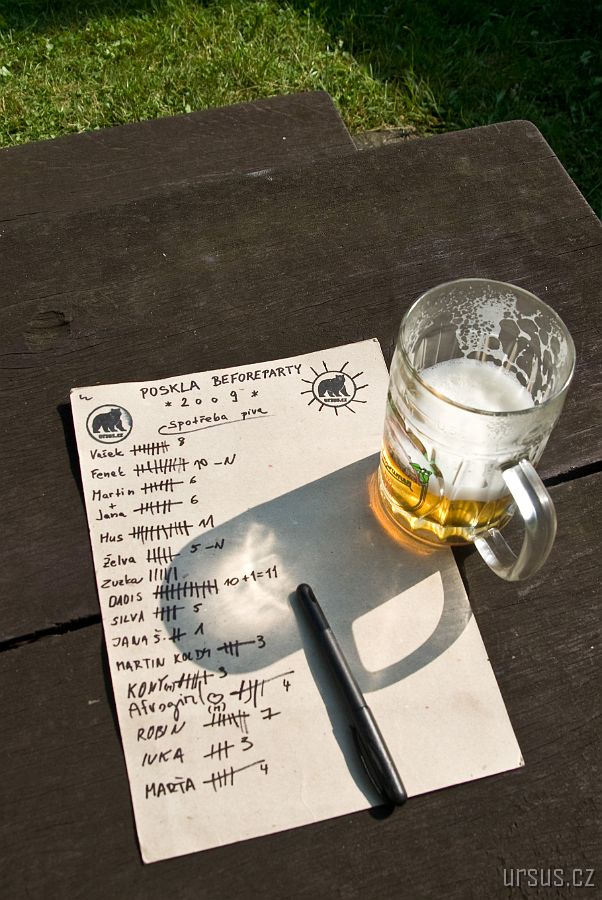 POSKLA BEFOREPARTY
* 2009 *
spotřeba piva
URSUS.CZ
URSUS.CZ
Vašek 8
Fenek 10 -N
Martin 6
+
Jana 6
Hus 11
Želva 5 -N
Zuzka
DADIS 10+1=11
SILVA 5
JANA Š. 1
MARTIN KOLDA 3
KONY 3
Afrogirl 4
ROBIN 7
IVKA 3
MARŤA 4
ursus.cz